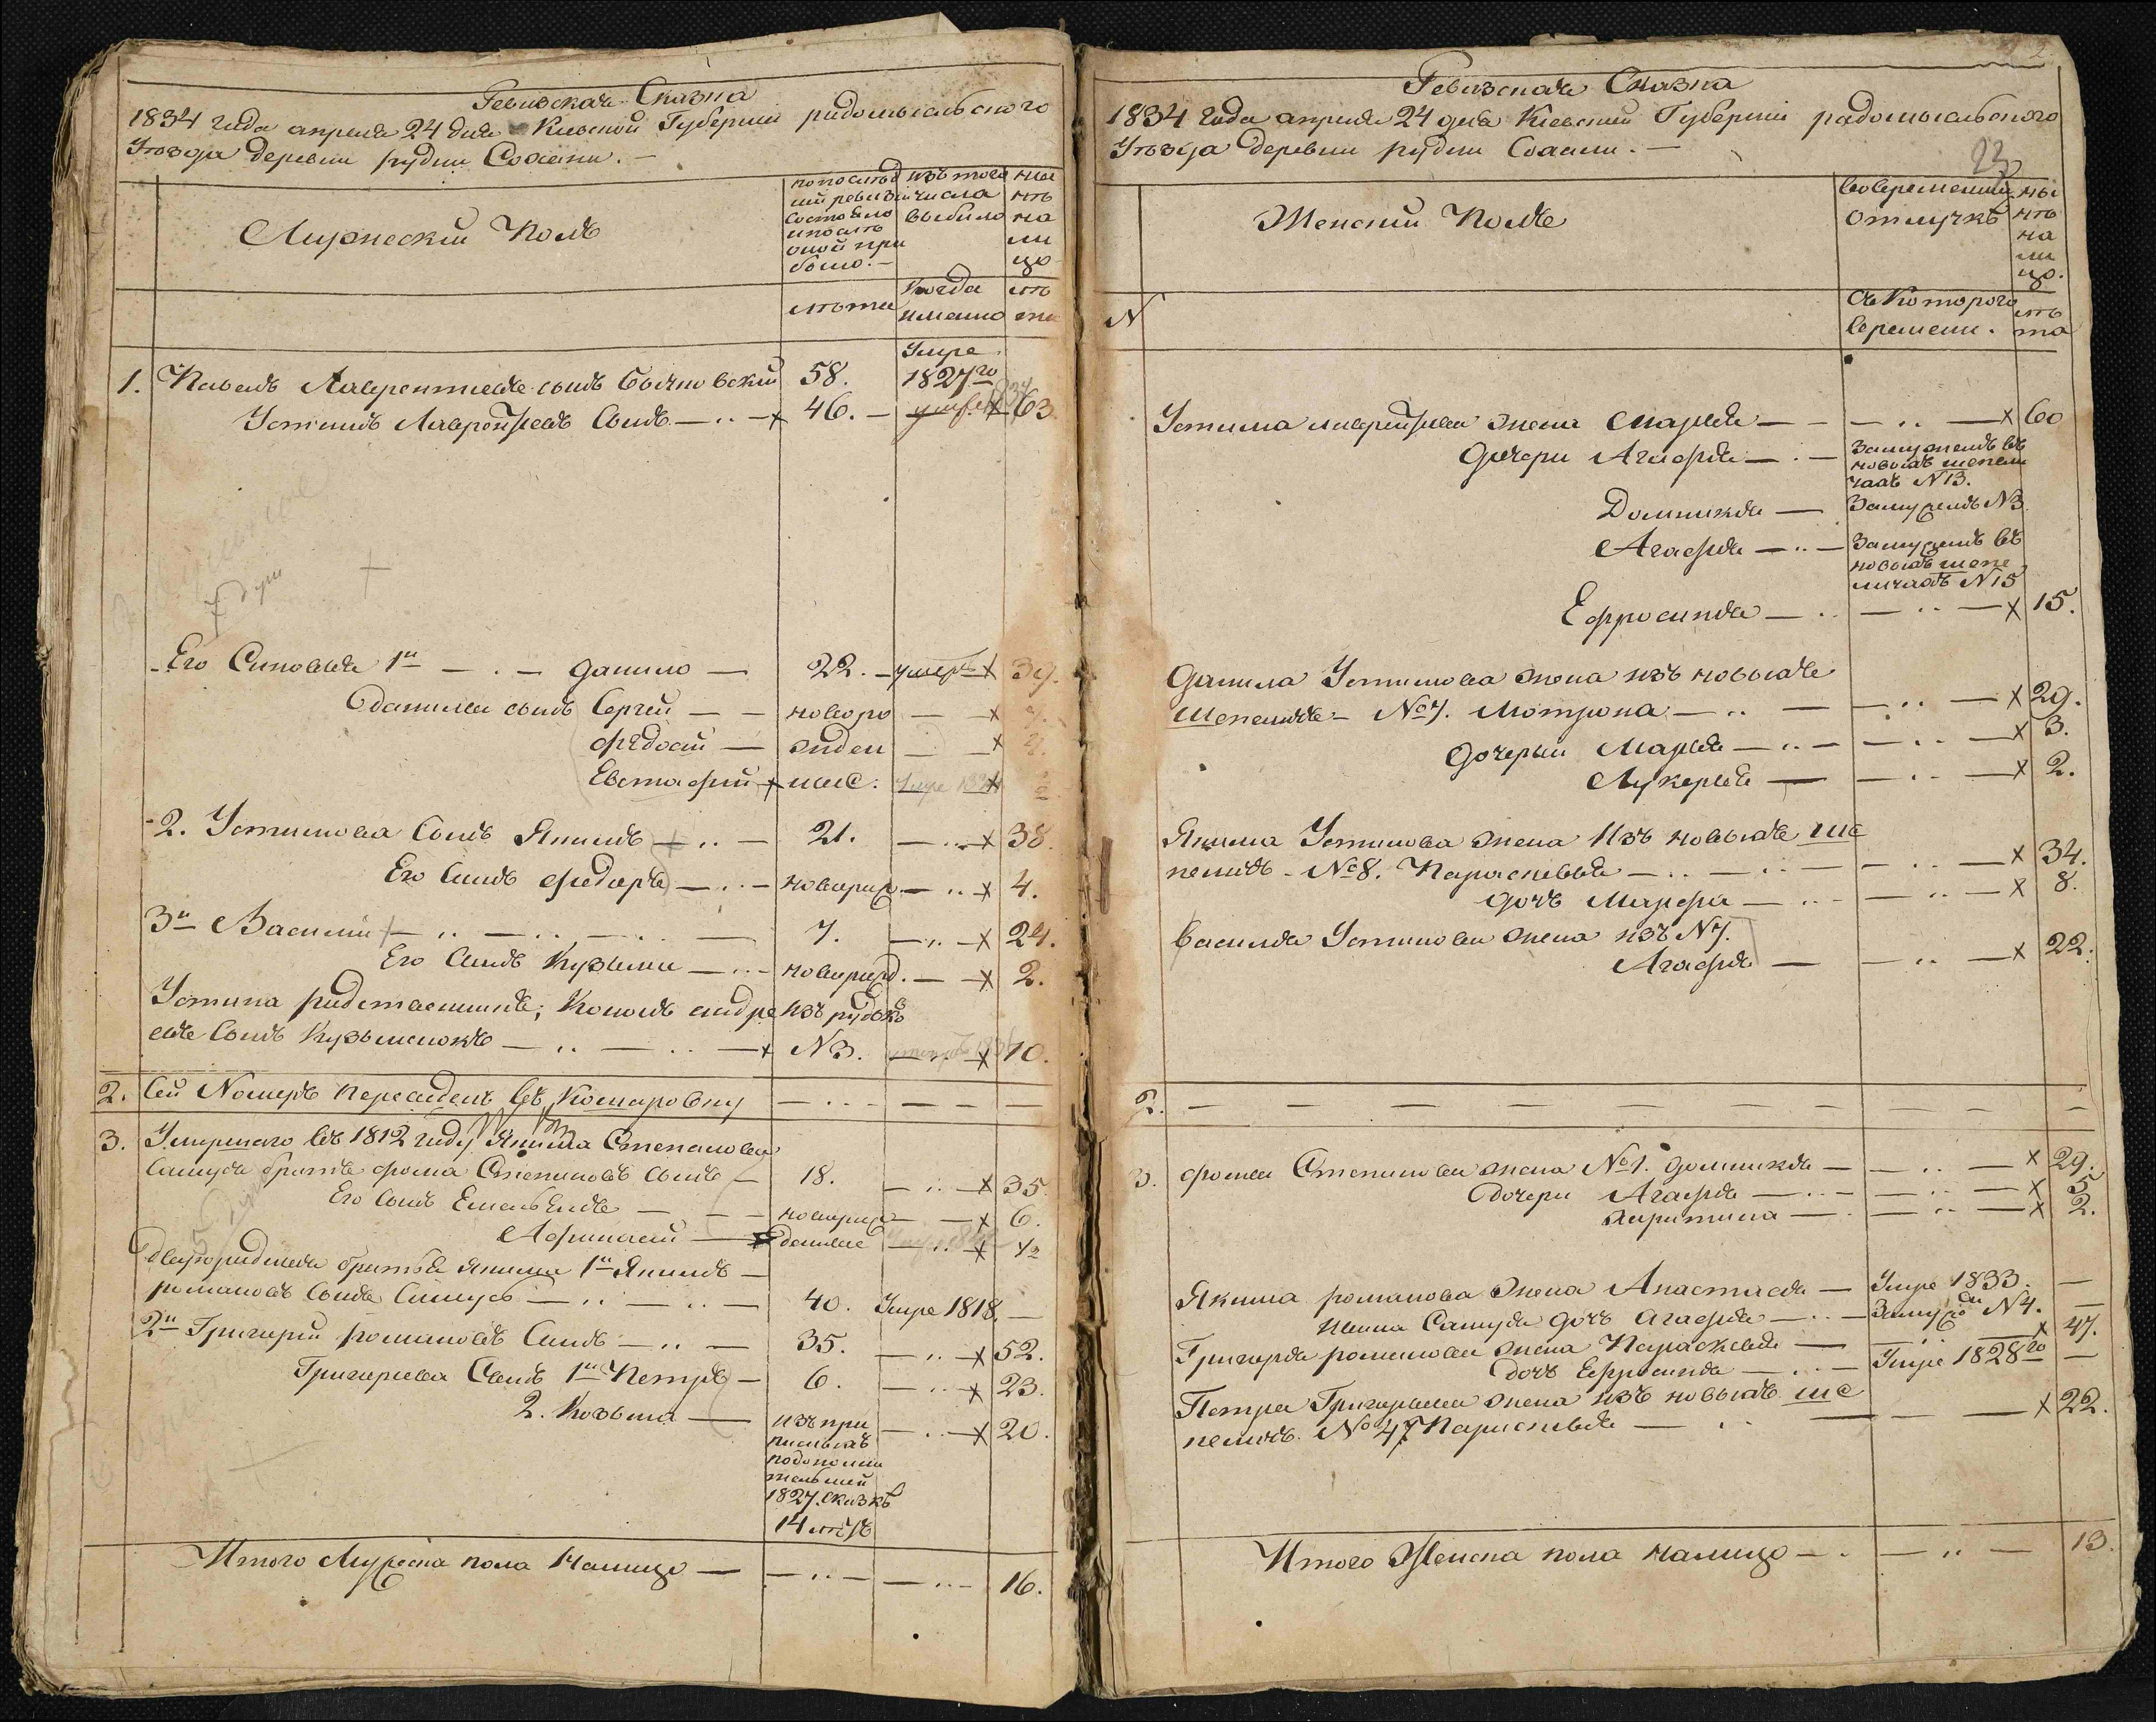 Ревизская Сказка
1834 года апреля 24 дня Киевской Губернии радомысльского
Уезда деревни рудни Сохани. —
Мужеский Полъ
по послед
ней ревизии
состояло
и после
оной при
было. —
изъ того
числа
выбыло
ны
нѣ
на
ли
цо
лѣта
Когда
имянно
лѣ
та
1. Павелъ Лаврентиевъ сынъ 58. Умре
1827го
Устимъ Лаврентиевъ Сынъ — 46. — 63.
Его Синовья 1й — Данило — 22. — умеръ 39.
Данила сынъ Сергей — новоро —
Федосий — жден —
Евстафий — ные. Умре
2. Устимова Сынъ Якимъ — 21. — 38.
Его Сынъ Федоръ — новорож — 4.
3й Василий — 7. — 24.
Его Сынъ Кузьма — новорожд. — 2.
Устима родственникъ; Кононъ андре изъ рудокъ
евъ Сынъ Кузьменокъ — N3. — 10.
2. Сей Номеръ переведенъ въ Комаровку —
3. Умершаго въ 1812 году Якима Степанова
Самуся братъ фома Степановъ сынъ — 18. — 35
Его Сынъ Емельянъ — новорож — 6.
Афанасий — денные — 1/2
Двоюродныя братья Якима 1й Якимъ —
романовъ Сынъ Самусь — 40. Умре 1818. —
2й Григорий романовъ Сынъ — 35. — 52.
Григориева Сынъ 1й Петръ — 6. — 23.
2. Козьма — изъ при — 20.
писныхъ
по дополни
тельной
1827. сказкѣ
14 лѣтъ
Итого Мужеска пола Налицо — 16.
2
Ревизская Сказка
1834 года апреля 24 дня Киевской Губернии радомысльского
Уезда деревни рудни Сохани. —
23
N
Женский Полъ
во временной
отлучкѣ
ны
нѣ
на
ли
цо.
Съ Которого
времени.
лѣ
та
Устима лаврентиева жена Марья — 60
Дочери Агафья — Замужемъ въ
новыхъ шепели
чахъ N13.
Домникия — Замужемъ N3
Агафья — Замужемъ въ
новыхъ шепе
личахъ N15
Ефросинья — 15.
Данила Устимова жена изъ новыхъ
Шепеличъ — №7. Мотрона — 29.
Дочерыи Марья — 3.
Лукерья — 2.
Якима Устимова жена Изъ новыхъ ше
пеличъ — №8. Парасковья — 34.
Дочь Марфа — 8.
Василя Устимова жена изъ N7.
Агафья — 22.
2. —
3. фомы Степанова жена №1. Домникия — 29.
Дочери Агафья — 5
Харитина — 2.
Якима романова жена Анастасия — Умре 1833. —
Ивана Самуся дочь Агафья — N4. —
Григорья романова жена Парасковья — 47.
Дочь Ефросинья — Умре 1828го —
Петра Григорьева жена изъ новыхъ ше
пеличъ. №47 Парасковья — 22.
Итого Женска пола Налицо — 13.